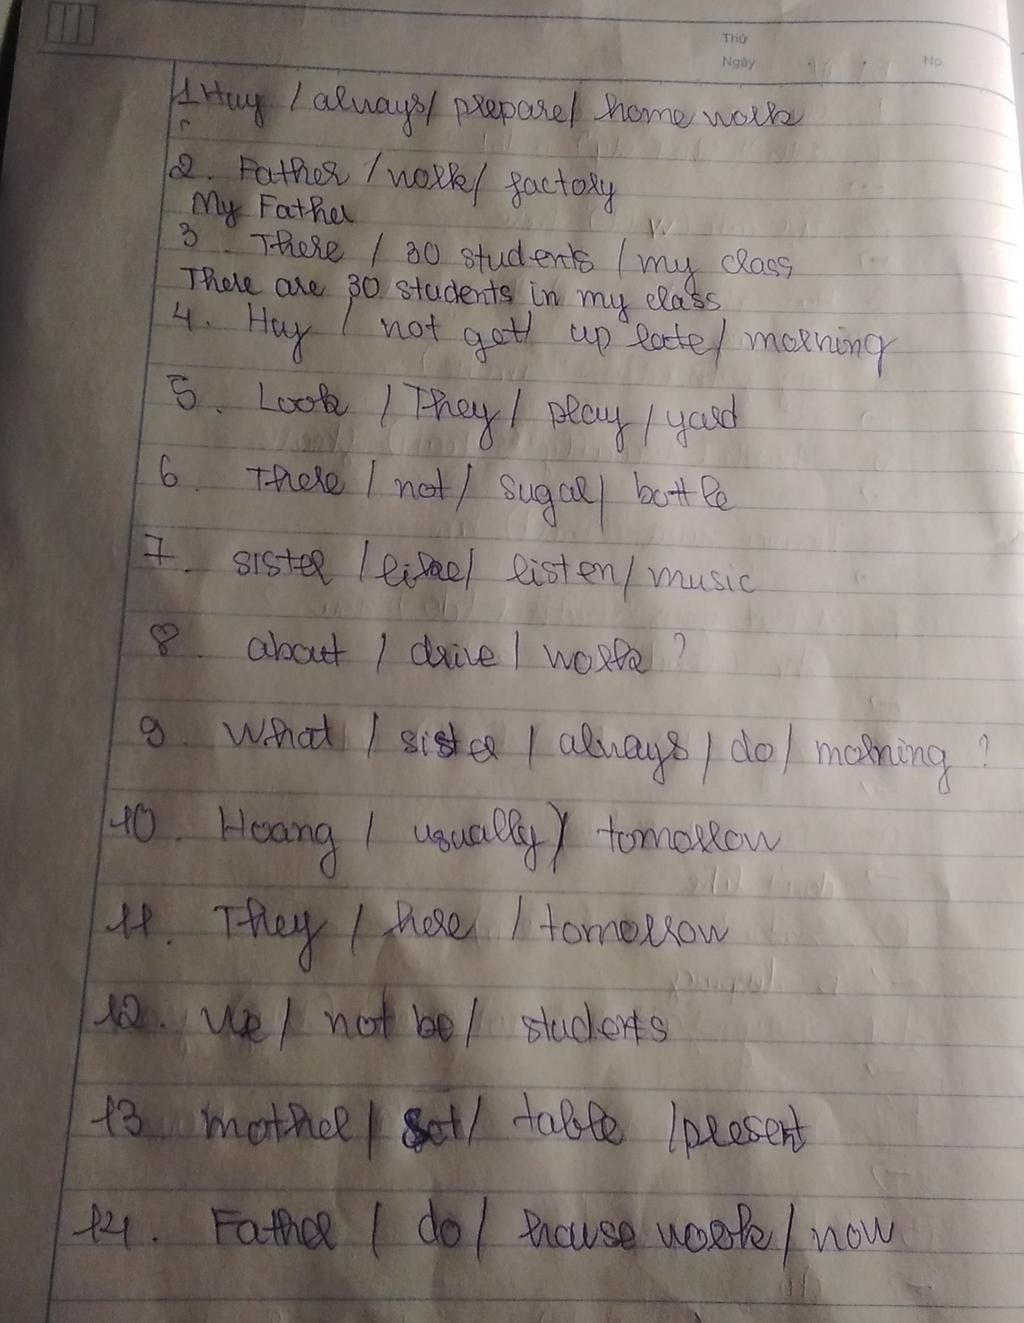 Thứ
Ngày
No
1. Huy / always / prepare / home work
2. Father / work / factory
My Father
3. There / 30 students / my class
There are 30 students in my class
4. Huy / not get / up late / morning
5. Look / They / play / yard
6. There / not / sugar / bottle
7. sister / like / listen / music
8. about / drive / work ?
9. What / sister / always / do / morning ?
10. Hoang / usually / tomorrow
11. They / here / tomorrow
12. We / not be / students
13. mother / set / table / present
14. Father / do / house work / now